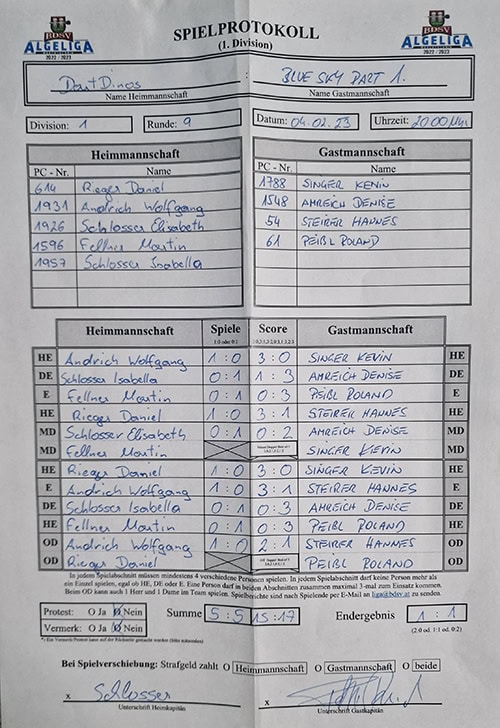 BDSV
ALGELIGA
2022 / 2023
SPIELPROTOKOLL
(1. Division)
BDSV
ALGELIGA
2022 / 2023
DartDinos : BLUE SKY DART 1.
Name Heimmannschaft Name Gastmannschaft
Division: 1 Runde: 9 Datum: 04.02.23 Uhrzeit: 20 00 Uhr
Heimmannschaft
PC - Nr. Name
614 Rieger Daniel
1931 Andrich Wolfgang
1926 Schlosser Elisabeth
1596 Fellner Martin
1957 Schlosser Isabella
Gastmannschaft
PC - Nr. Name
1788 SINGER KEVIN
1548 AMREICH DENISE
54 STEIRER HANNES
61 PEIßL ROLAND
Heimmannschaft Spiele Score Gastmannschaft
1:0 oder 0:1
HE Andrich Wolfgang 1:0 3:0 SINGER KEVIN HE
DE Schlosser Isabella 0:1 1:3 AMREICH DENISE DE
E Fellner Martin 0:1 0:3 PEIßL ROLAND E
HE Rieger Daniel 1:0 3:1 STEIRER HANNES HE
MD Schlosser Elisabeth 0:1 0:2 AMREICH DENISE MD
MD Fellner Martin SINGER KEVIN MD
HE Rieger Daniel 1:0 3:0 SINGER KEVIN HE
E Andrich Wolfgang 1:0 3:1 STEIRER HANNES E
DE Schlosser Isabella 0:1 0:3 AMREICH DENISE DE
HE Fellner Martin 0:1 0:3 PEIßL ROLAND HE
OD Andrich Wolfgang 1:0 2:1 STEIRER HANNES OD
OD Rieger Daniel PEIßL ROLAND OD
In jedem Spielabschnitt müssen mindestens 4 verschiedene Personen spielen. In jedem Spielabschnitt darf keine Person mehr als
ein Einzel spielen, egal ob HE, DE oder E. Eine Person darf in beiden Abschnitten zusammen maximal 3-mal zum Einsatz kommen.
Beim OD kann auch 1 Herr und 1 Dame im Team spielen. Spielberichte sind nach Spielende per E-Mail an liga@bdsv.at zu senden.
Protest: O Ja O Nein Summe 5:5 15:17 Endergebnis 1:1
Vermerk: O Ja O Nein (2:0 od. 1:1 od. 0:2)
*) Ein Vermerk/Protest kann auf der Rückseite gemacht werden (bitte ankreuzen)
Bei Spielverschiebung: Strafgeld zahlt O Heimmannschaft O Gastmannschaft O beide
x Schlosser x
Unterschrift Heimkapitän Unterschrift Gastkapitän